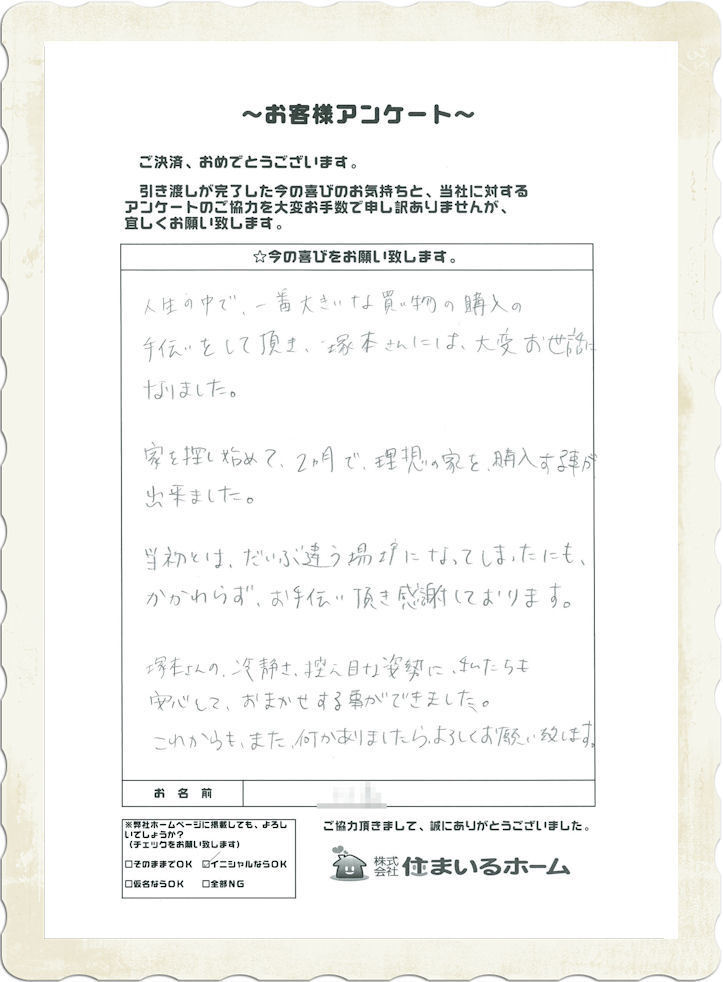 ～お客様アンケート～
ご決済、おめでとうございます。
引き渡しが完了した今の喜びのお気持ちと、当社に対する
アンケートのご協力を大変お手数で申し訳ありませんが、
宜しくお願い致します。
☆今の喜びをお願い致します。
人生の中で、一番大きいな買い物の購入の
手伝いをして頂き、塚本さんには、大変お世話に
なりました。
家を探し始めて、2ヵ月で、理想の家を、購入する事が
出来ました。
当初とは、だいぶ違う場所になってしまったにも、
かかわらず、お手伝い頂き感謝しております。
塚本さんの、冷静さ、控え目な姿勢に、私たちも
安心して、おまかせする事ができました。
これからも、また、何かありましたら、よろしくお願い致します。
お名前
※弊社ホームページに掲載しても、よろし
いでしょうか？
（チェックをお願い致します）
□そのままでOK ☑イニシャルならOK
□仮名ならOK □全部NG
ご協力頂きまして、誠にありがとうございました。
株式会社 住まいるホーム